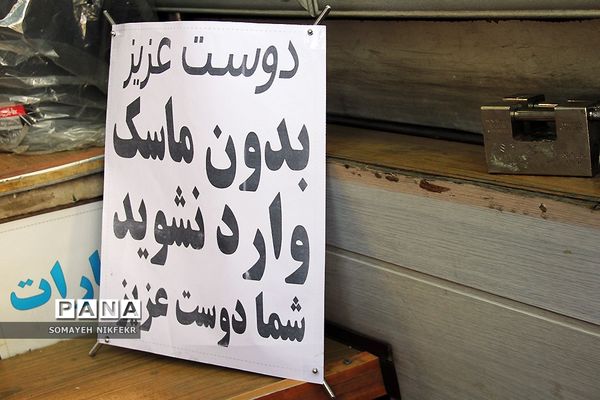 دوست عزیز
بدون ماسک
وارد نشوید
شما دوست عزیز
PANA
SOMAYEH NIKFEKR